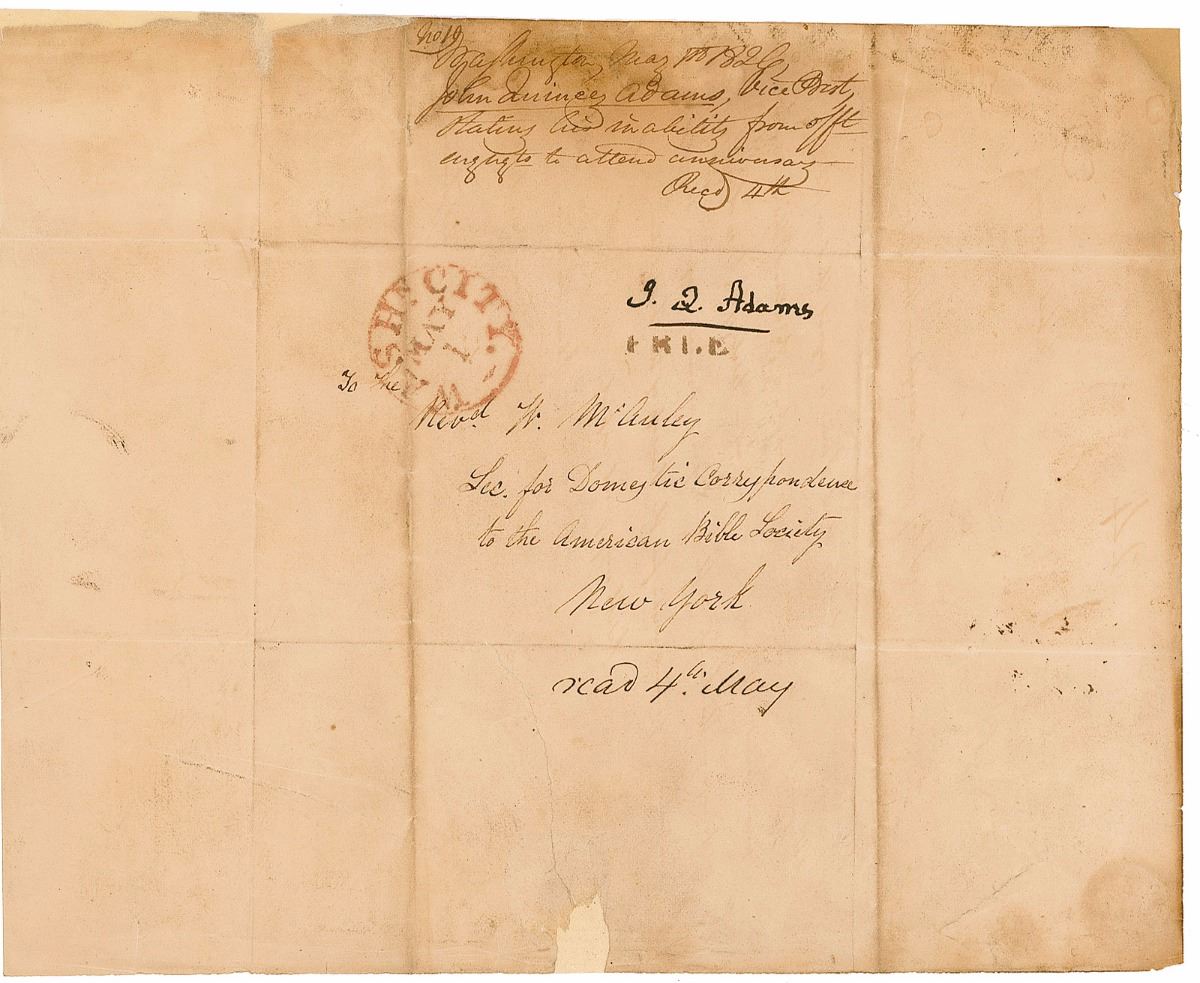 No 19
Washington May 1st 1826
John Quincey Adams, Vice Prest,
Stating his inability from offl
engagts to attend anniversary
Recd 4th
J. Q. Adams
WASH CITY.
MAY
1
FREE
To the
Revd. W. McAuley
Sec. for Domestic Correspondence
to the American Bible Society
New York
read 4th. May